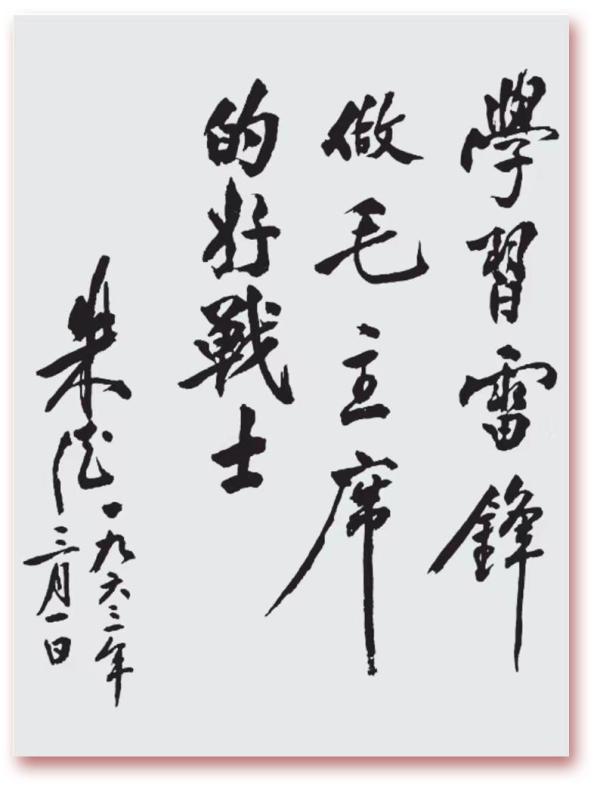 學習雷鋒
做毛主席
的好戰士
朱德 一九六三年
三月一日